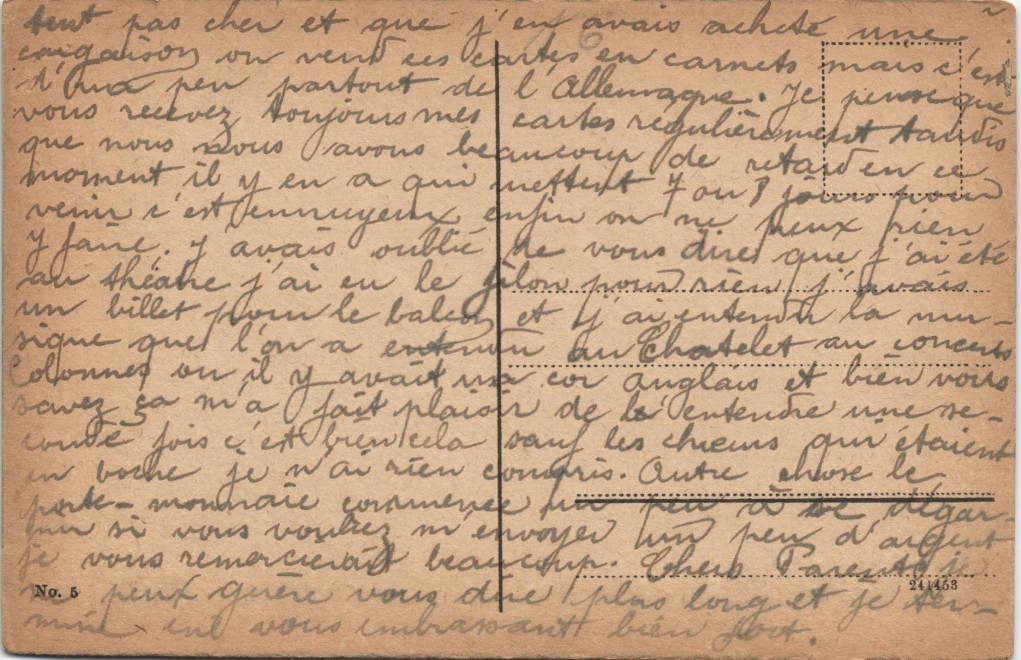 tent pas cher et que j'en avais acheté une
cargaison on vend ces cartes en carnets mais c'est
d' un peu partout de l'Allemagne. Je pense que
vous recevez toujours mes cartes regulièrement tandis
que nous nous avons beaucoup de retard en ce
moment il y en a qui mettent 7 ou 8 jours pour
venir c'est ennuyeux enfin on ne peux rien
y faire. J'avais oublié de vous dire que j'ai été
au théatre j'ai eu le filon pour rien j'avais
un billet pour le balcon et j'ai entendu la mu-
sique que l'on a entendu au Chatelet au concerts
Colonnes ou il y avait un cor anglais et bien vous
savez ça m'a fait plaisir de l'entendre une se-
conde fois c'est bien cela sauf les chœurs qui étaient
en boche je n'ai rien compris. Autre chose le
porte-monnaie commence un peu à se dégar-
nir si vous vouliez m'envoyer un peu d'argent
je vous remercierait beaucoup. Chers Parents je
ne peux guère vous dire plus long et je ter-
mine en vous embrassant bien fort.
No. 5
241453